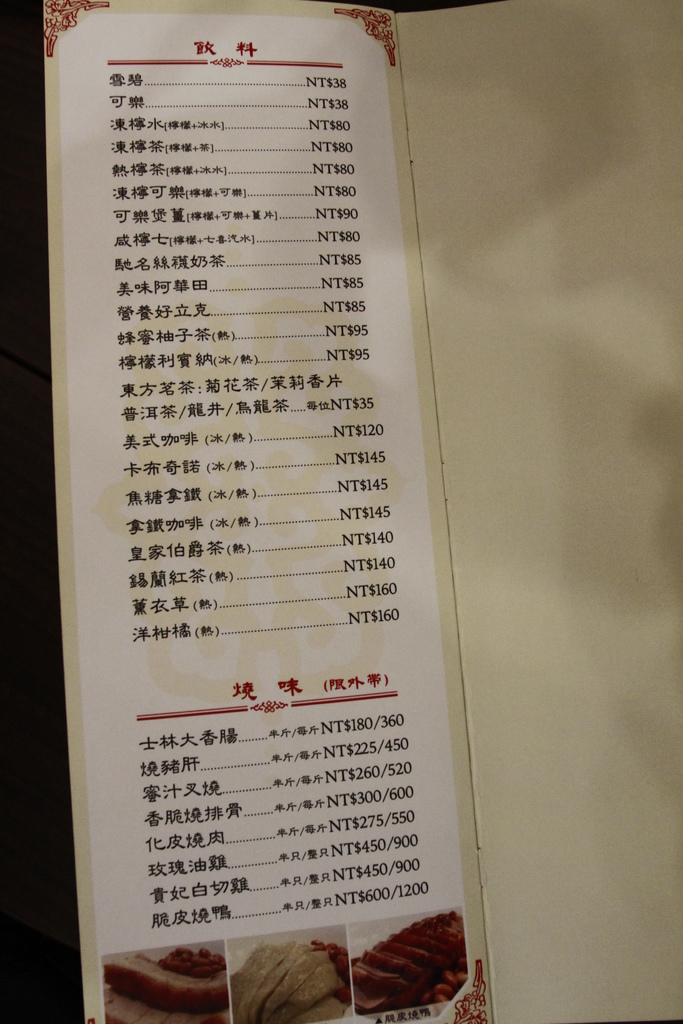 飲 料
雪碧........NT$38
可樂........NT$38
凍檸水[檸檬+冰水]........NT$80
凍檸茶[檸檬+茶]........NT$80
熱檸茶[檸檬+冰水]........NT$80
凍檸可樂[檸檬+可樂]........NT$80
可樂煲薑[檸檬+可樂+薑片]........NT$90
咸檸七[檸檬+七喜汽水]........NT$80
馳名絲襪奶茶........NT$85
美味阿華田........NT$85
營養好立克........NT$85
蜂蜜柚子茶(熱)........NT$95
檸檬利賓納(冰/熱)........NT$95
東方茗茶:菊花茶/茉莉香片
普洱茶/龍井/烏龍茶.....每位NT$35
美式咖啡 (冰/熱)........NT$120
卡布奇諾 (冰/熱)........NT$145
焦糖拿鐵 (冰/熱)........NT$145
拿鐵咖啡 (冰/熱)........NT$145
皇家伯爵茶(熱)........NT$140
錫蘭紅茶(熱)........NT$140
薰衣草(熱)........NT$160
洋柑橘(熱)........NT$160
燒 味 (限外帶)
士林大香腸........半斤/每斤NT$180/360
燒豬肝........半斤/每斤NT$225/450
蜜汁叉燒........半斤/每斤NT$260/520
香脆燒排骨........半斤/每斤NT$300/600
化皮燒肉........半斤/每斤NT$275/550
玫瑰油雞........半只/整只NT$450/900
貴妃白切雞........半只/整只NT$450/900
脆皮燒鴨........半只/整只NT$600/1200
▲脆皮燒鴨